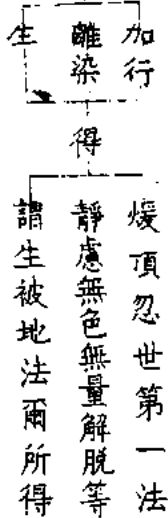 加行
離染
生
得
煖頂忍世第一法
靜慮無色無量解脱等
謂生被地法爾所得